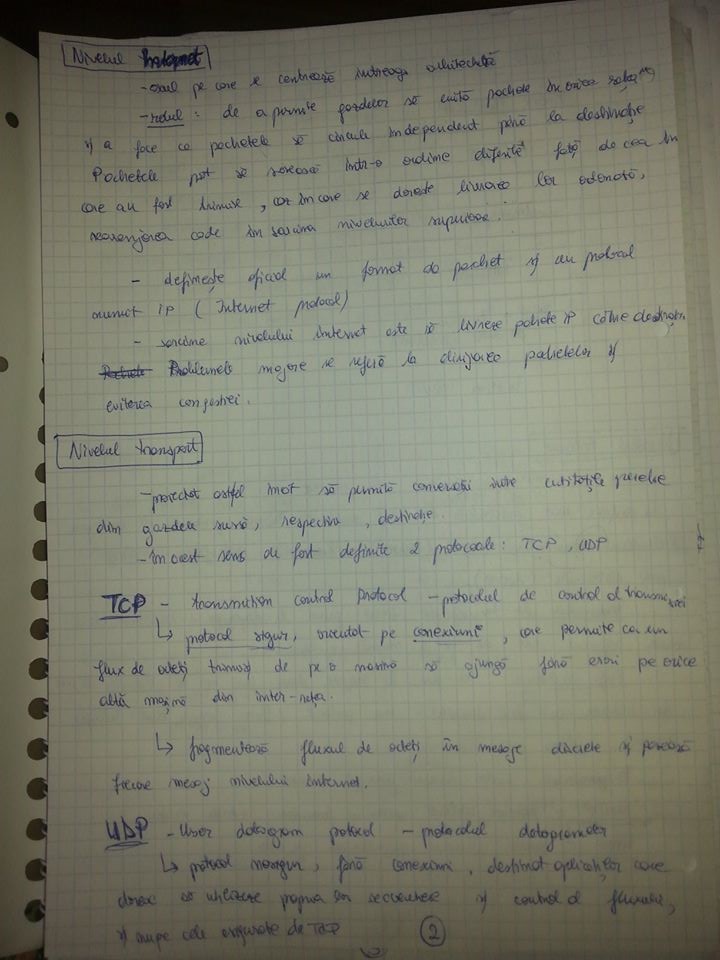 Nivelul Internet
- axul pe care se centrează întreaga arhitectură
- rolul : de a permite gazdelor să emită pachete în orice rețea
și a face ca pachetele să circule independent până la destinație
Pachetele pot să sosească într-o ordine diferită față de cea în
care au fost trimise, caz în care se dorește livrarea lor ordonată,
rearanjarea cade în sarcina nivelurilor superioare.
- definește oficial un format de pachet și un protocol
numit IP ( Internet protocol)
- sarcina nivelului internet este să livreze pachete IP către destinație
Problemele majore se referă la dirijarea pachetelor și
evitarea congestiei.
Nivelul transport
- proiectat astfel încât să permită conversații între entitățile perechi
din gazdele sursă, respectiv, destinație.
- În acest sens de fost definite 2 protocoale: TCP, UDP
TCP - transmition control Protocol - protocolul de control al transmisiei
↳ protocol sigur, orientat pe conexiuni, care permite ca un
flux de octeți trimiși de pe o mașină să ajungă fără erori pe orice
altă mașină din inter-rețea.
↳ fragmentează fluxul de octeți în mesaje discrete și pasează
fiecare mesaj nivelului internet.
UDP - User datagram protocol - protocolul datagramelor
↳ protocol nesigur, fără conexiuni, destinat aplicațiilor care
doresc să utilizeze propria lor secvențiere și control al fluxului,
și nu pe cele asigurate de TCP
2